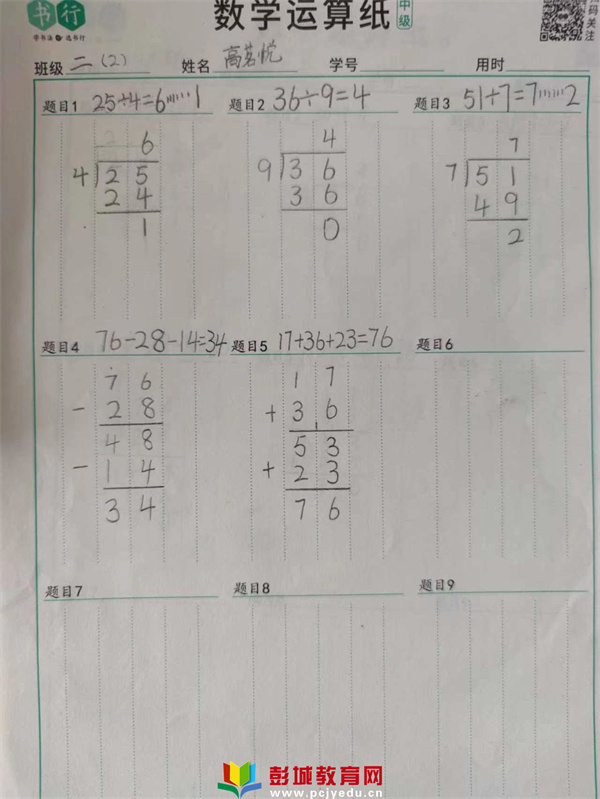 书行
学书法 选书行
数学运算纸 中级
扫码关注
班级 二(2) 姓名 高茗悦 学号 用时
题目1 25÷4=6……1 题目2 36÷9=4 题目3 51÷7=7……2
6
4 25
24
1
4
9 36
36
0
7
7 51
49
2
题目4 76-28-14=34 题目5 17+36+23=76 题目6
76
- 28
48
- 14
34
17
+ 36
53
+ 23
76
题目7 题目8 题目9
彭城教育网
www.pcjyedu.cn